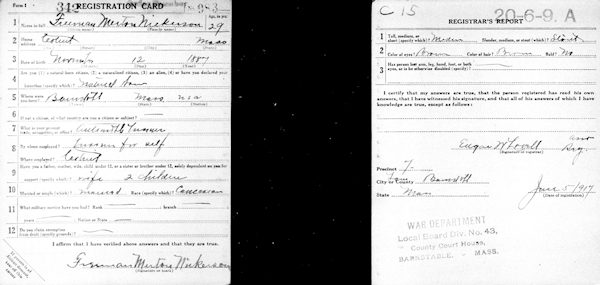 Form 1
REGISTRATION CARD No. 983
1 Name in full Freeman Merton Nickerson Age, in yrs. 29
2 Home address Cotuit Mass
3 Date of birth November 12 1887
(Month) (Day) (Year)
4 Are you (1) a natural born citizen, (2) a naturalized citizen, (3) an alien, (4) or have you declared your
intention (specify which)? natural born
5 Where were you born? Barnstable Mass USA
6 If not a citizen, of what country are you a citizen or subject?
7 What is your present trade, occupation, or office?
8 By whom employed? for self
Where employed? Cotuit
9 Have you a father, mother, wife, child under 12, or a sister or brother under 12, solely dependent on you for
support (specify which)? wife 2 children
10 Married or single (which)? married Race (specify which)? Caucasian
11 What military service have you had? Rank branch
years Nation or State
12 Do you claim exemption from draft (specify grounds)?
I affirm that I have verified above answers and that they are true.
Freeman Merton Nickerson
(Signature or mark)
C 15
20-6-9. A
REGISTRAR'S REPORT
1 Tall, medium, or short (specify which)? Medium Slender, medium, or stout (which)? Stout
2 Color of eyes? Brown Color of hair? Brown Bald? No
3 Has person lost arm, leg, hand, foot, or both eyes, or is he otherwise disabled (specify)?
I certify that my answers are true, that the person registered has read his own answers, that I have witnessed his signature, and that all of his answers of which I have knowledge are true, except as follows:
(Signature of registrar)
Precinct 7
City or County Barnstable
State Mass
June 5 1917
(Date of registration)
WAR DEPARTMENT
Local Board Div. No. 43,
County Court House,
BARNSTABLE, MASS.